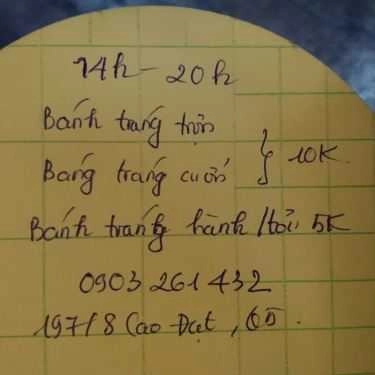 14h - 20h
Bánh tráng trộn
Báng tráng cuốn } 10K.
Bánh tráng hành / tỏi 5K
0903 261 432
197/8 Cao Đạt, Q5.